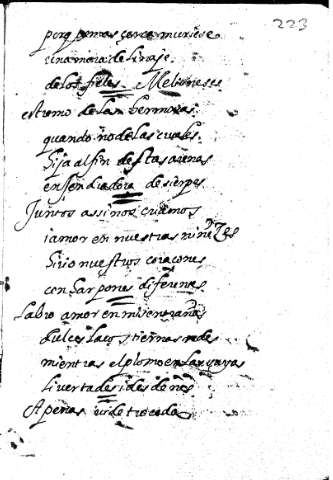 223
muriese
una mora de linaje
de los fieles Meliones es
estremo de las hermosas
quando no de las crueles
hija al fin destas arenas
enjendradora de sierpes
Juntos assi nos criamos
i amor en nuestras niñezes
hirio nuestros coraçones
con harpones diferentes
Labro amor en mis entrañas
dulces laços tiernas redes
mientras el plomo en las tuyas
livertades i desdenes
Apenas vide trocada